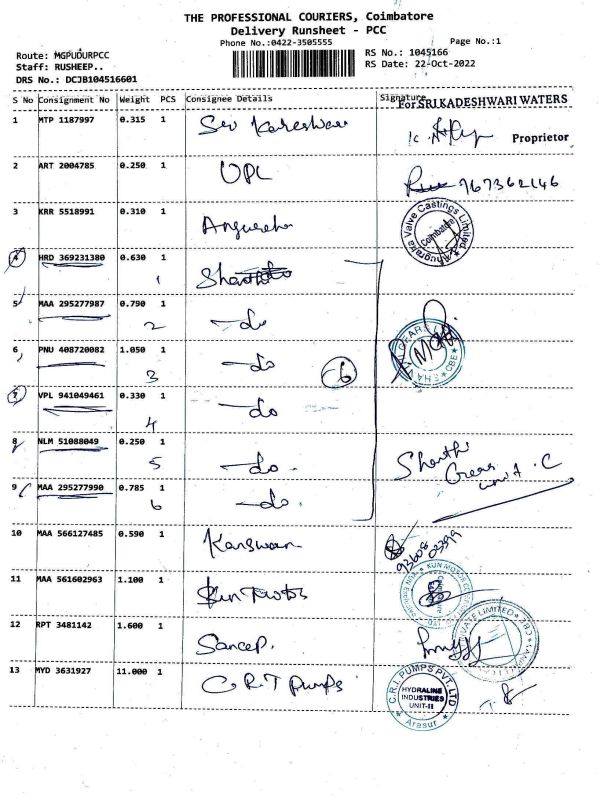 THE PROFESSIONAL COURIERS, Coimbatore
Delivery Runsheet - PCC
Phone No.:0422-3505555 Page No.:1
Route: MGPUDURPCC RS No.: 1045166
Staff: RUSHEEP.. RS Date: 22-Oct-2022
DRS No.: DCJB104516601
S No Consignment No Weight PCS Consignee Details Signature
For SRI KADESHWARI WATERS
1 MTP 1187997 0.315 1
Proprietor
2 ART 2004785 0.250 1 UPL 967362146
3 KRR 5518991 0.310 1
Anugraha Valve Castings Limited
Coimbatore
4 HRD 369231380 0.630 1
1
5 MAA 295277987 0.790 1 -do
2
6 PNU 408720082 1.050 1 -do 6
3
7 VPL 941049461 0.330 1 -do
4
8 NLM 51088049 0.250 1 -do. Shanthi Gears unit . C
5
9 MAA 295277990 0.785 1 -do.
6
10 MAA 566127485 0.590 1 93608 03399
11 MAA 561602963 1.100 1
12 RPT 3481142 1.600 1
13 MYD 3631927 11.000 1 C.R.I Pumps
C.R.I. PUMPS PVT. LTD
HYDRALINE
INDUSTRIES
UNIT-II
Arasur